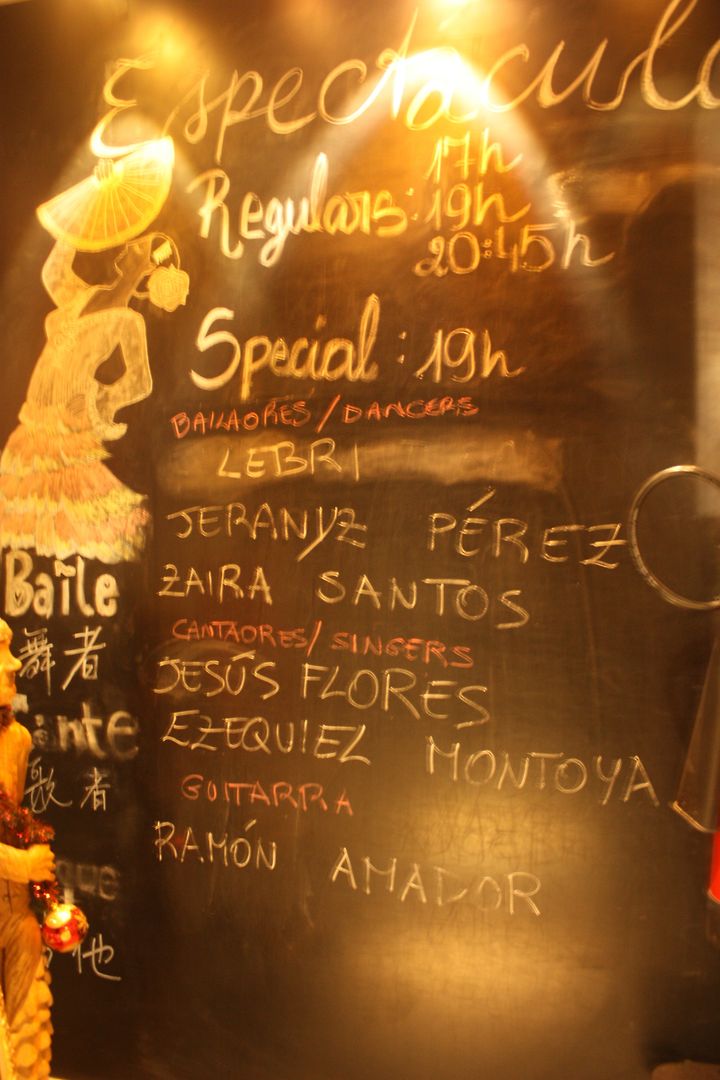 Espectáculo
17h
Regulars: 19h
20:45h
Special: 19h
BAILAORES/DANCERS
LEBRI
JERANYZ PÉREZ
ZAIRA SANTOS
CANTAORES/SINGERS
JESÚS FLORES
EZEQUIEL MONTOYA
GUITARRA
RAMÓN AMADOR
Baile
舞者
ante
歌者
que
他